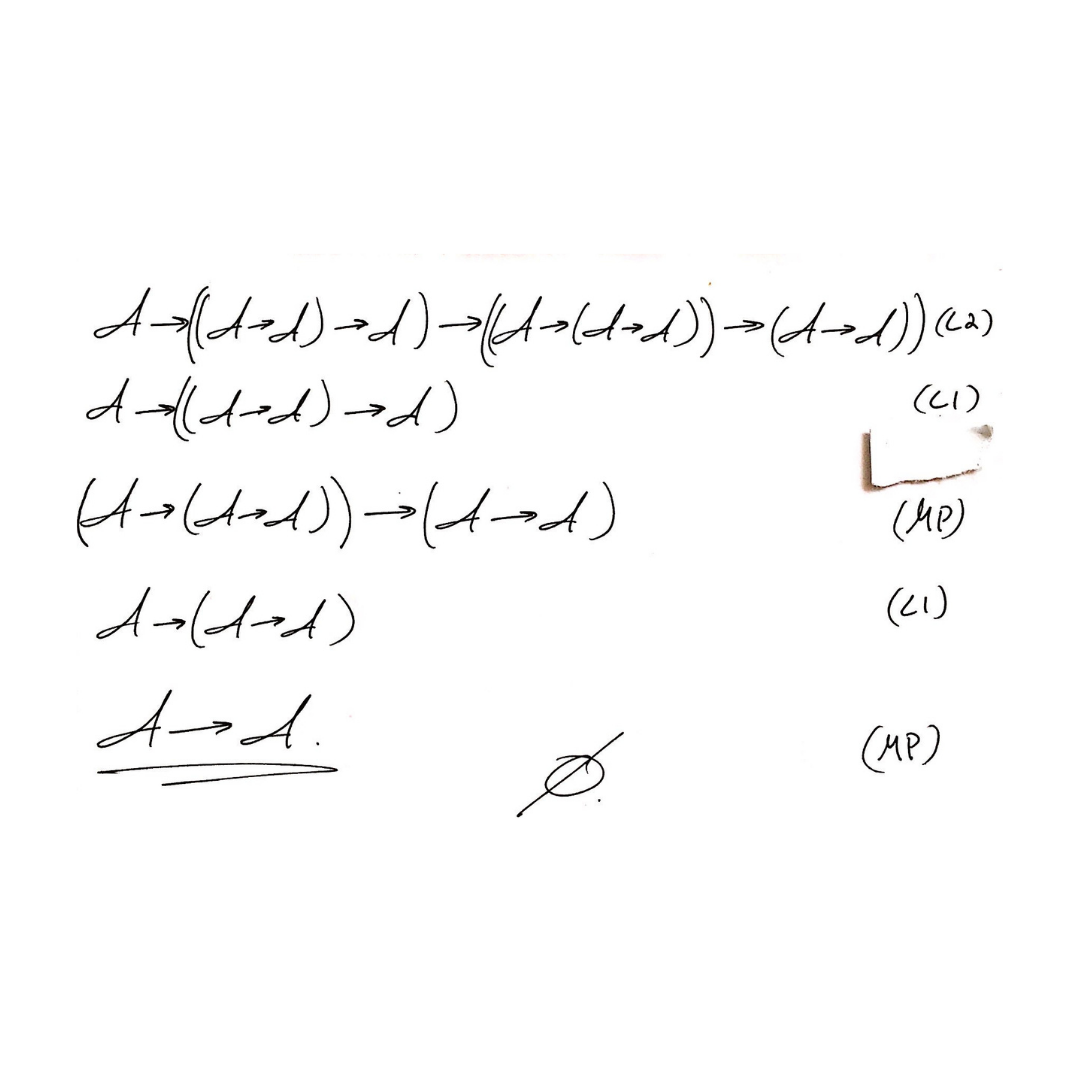 A→((A→A)→A)→((A→(A→A))→(A→A)) (L2)
A→((A→A)→A) (L1)
(A→(A→A))→(A→A) (MP)
A→(A→A) (L1)
A→A. (MP)
∅.